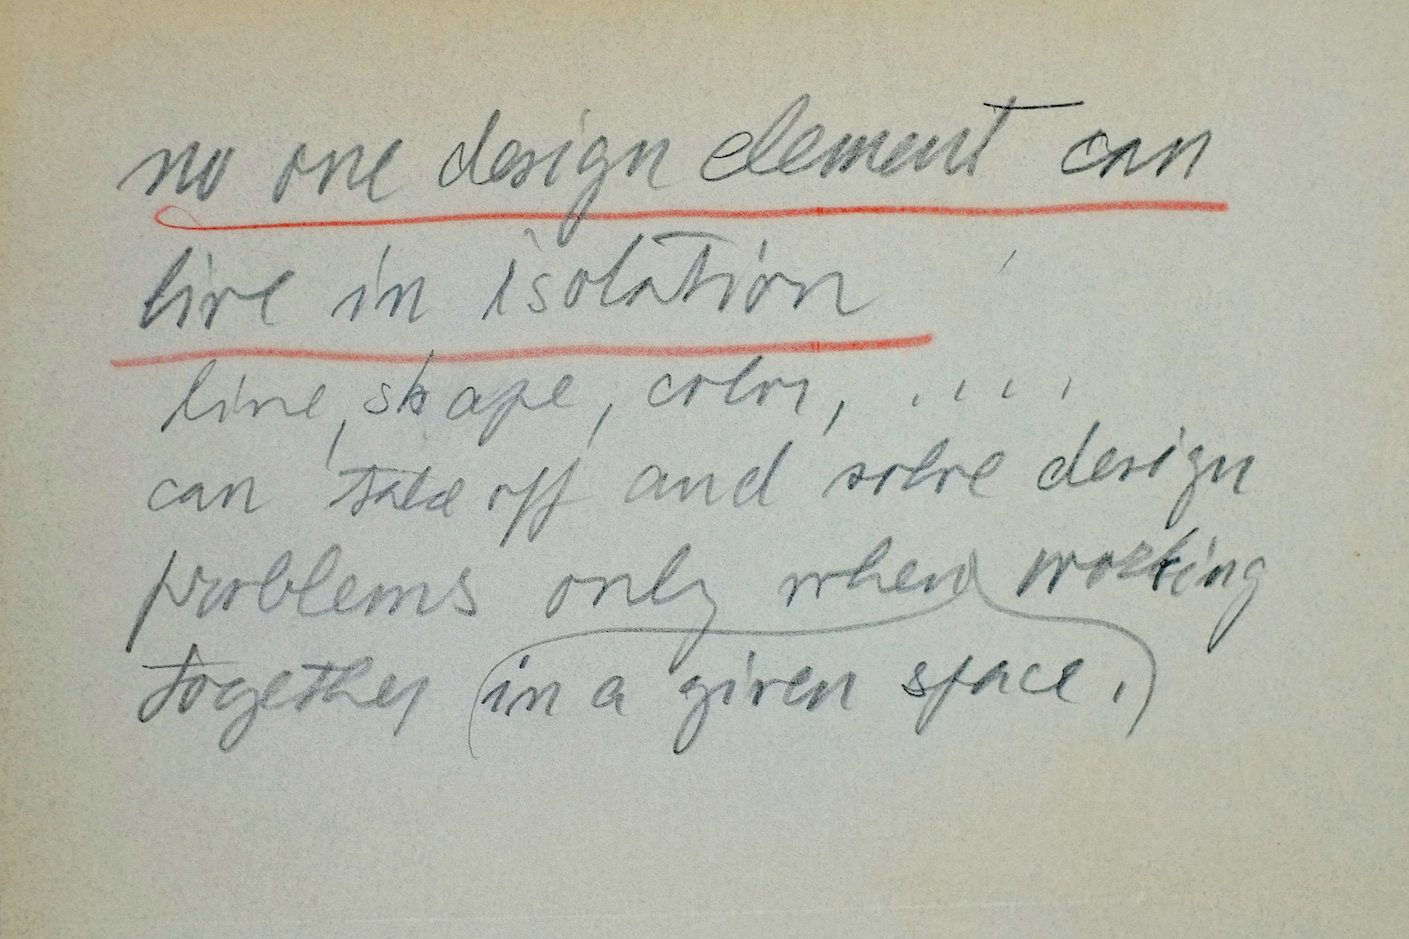 no one design element can
live in isolation
line, shape, color, ....
can take off and solve design
problems only when working
together (in a given space.)